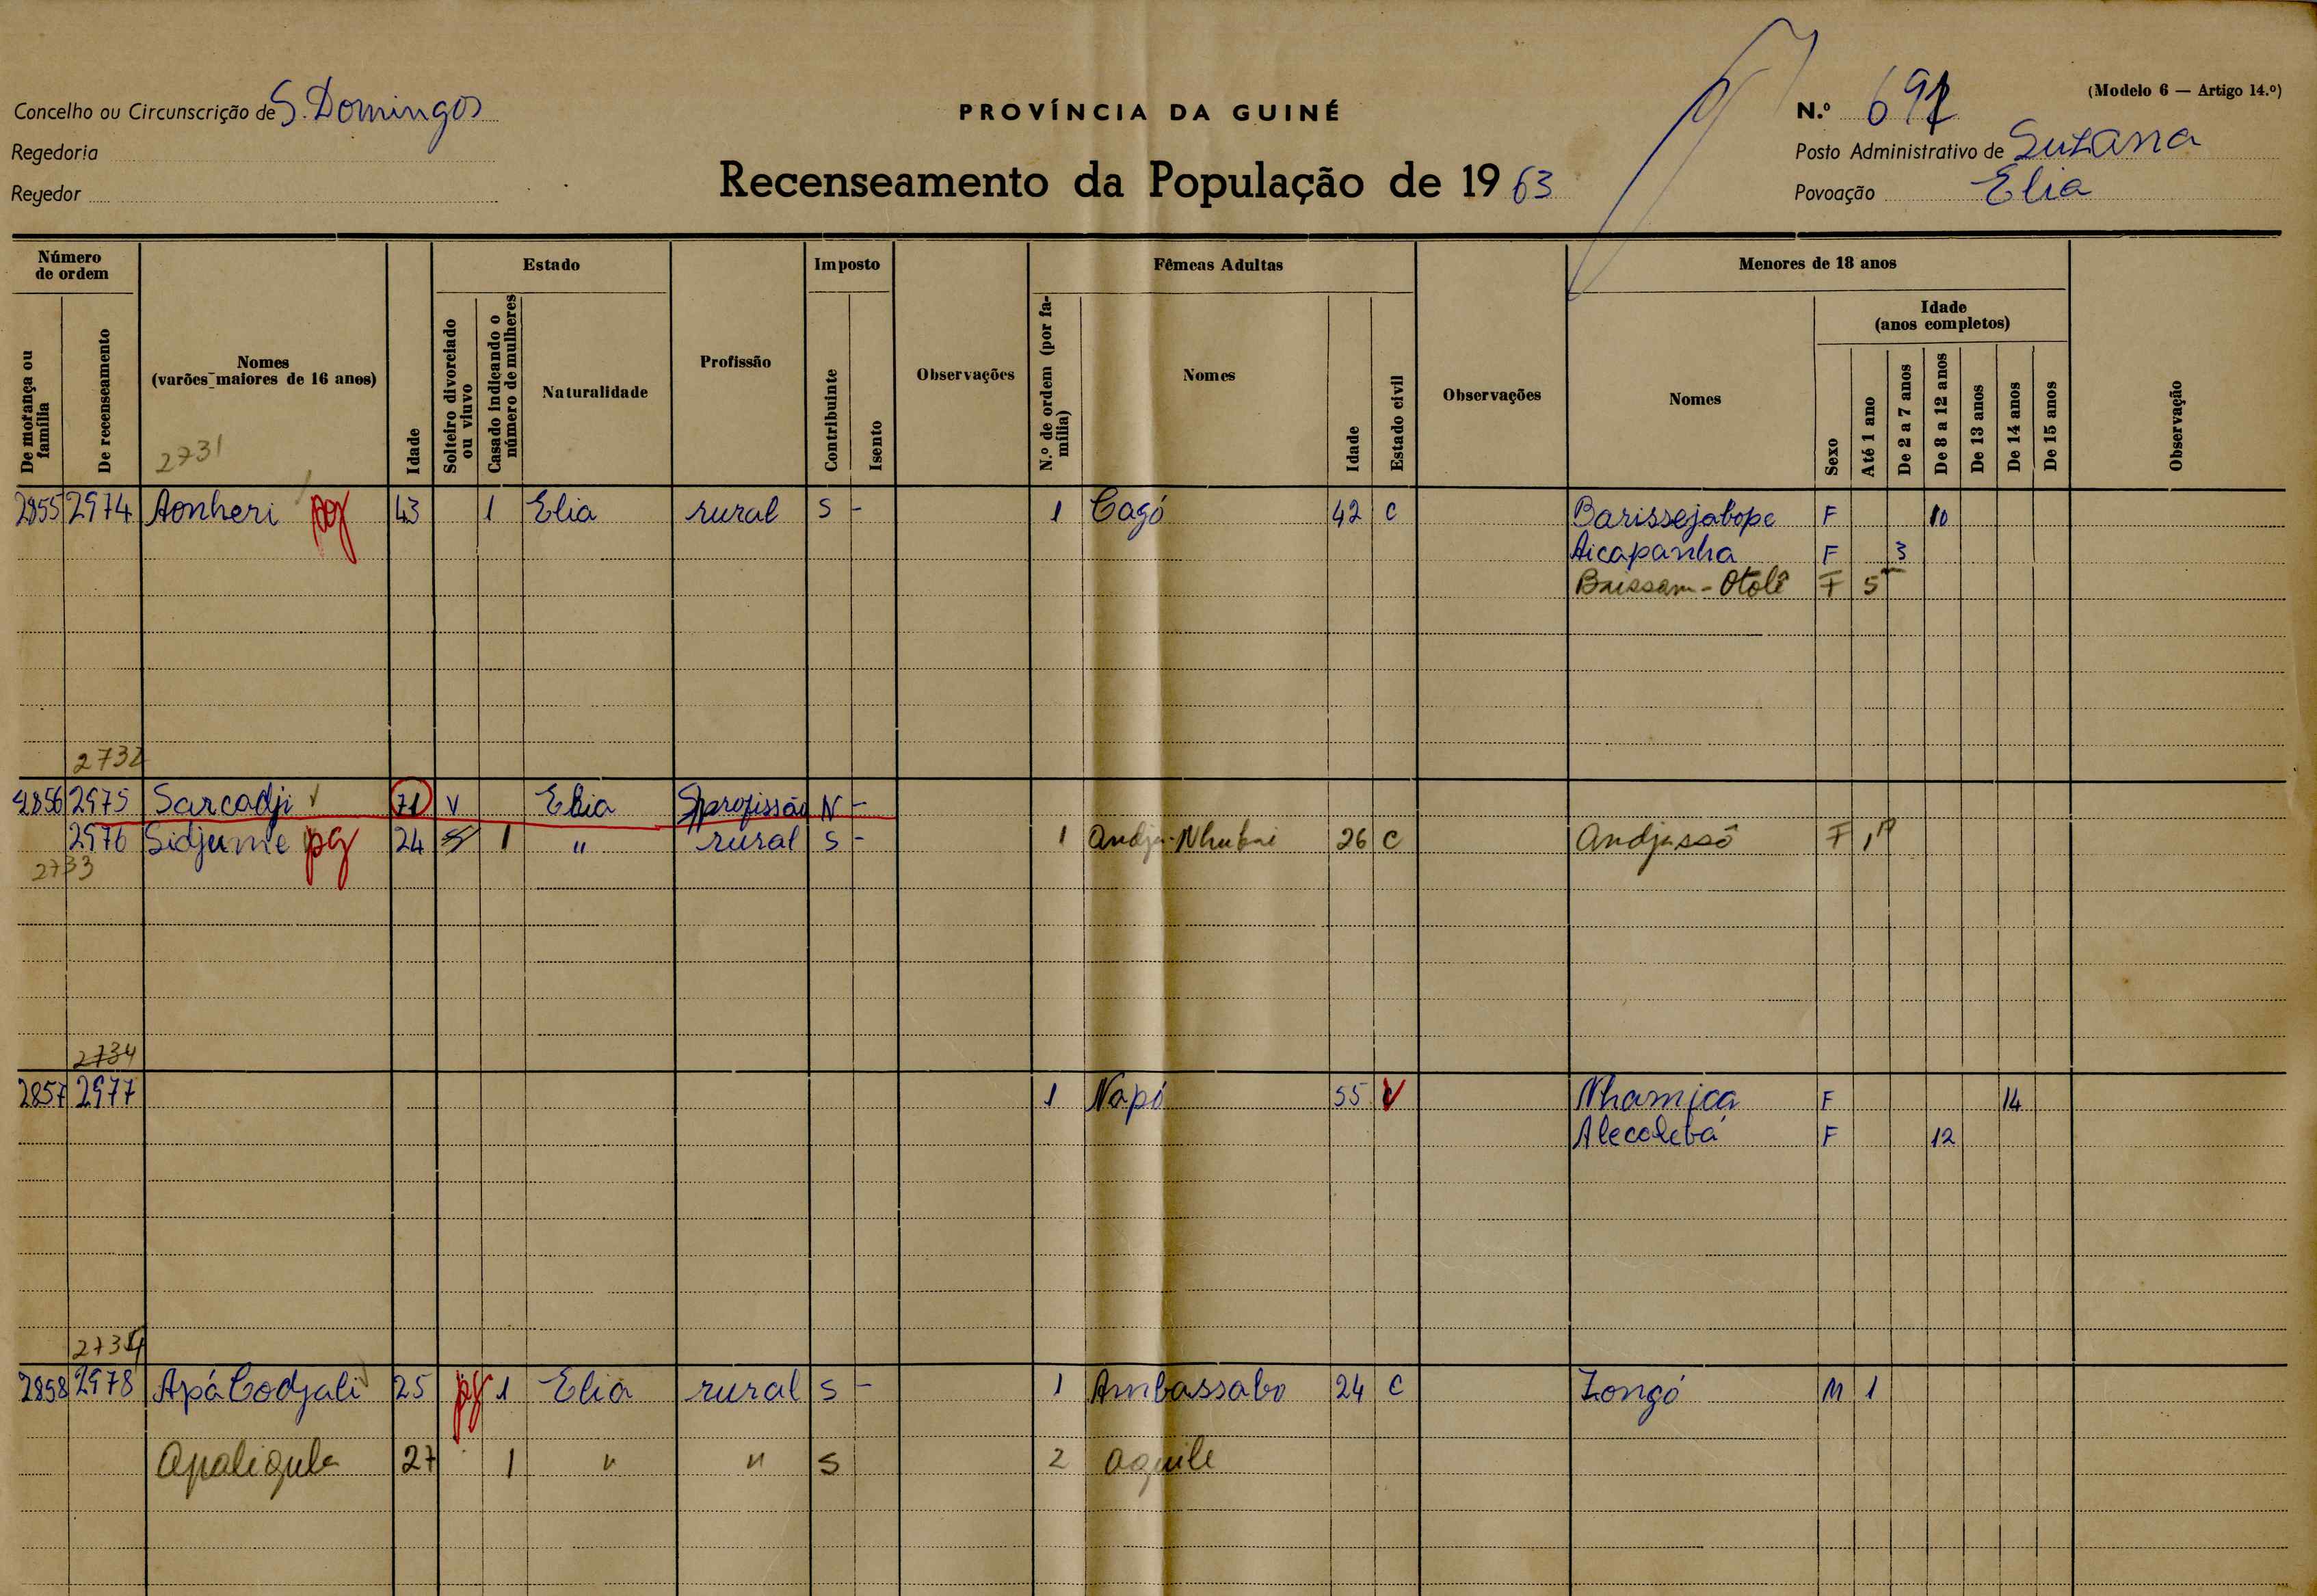 Concelho ou Circunscrição de S. Domingos
Regedoria
Reyedor
PROVÍNCIA DA GUINÉ
Recenseamento da População de 1963
(Modelo 6 — Artigo 14.º)
N.º 697
Posto Administrativo de Suzana
Povoação Elia
Número de ordem
De morança ou família
De recenseamento
Nomes
(varões maiores de 16 anos)
2731
Idade
Estado
Solteiro divorciado ou viuvo
Casado indicando o número de mulheres
Naturalidade
Profissão
Imposto
Contribuinte
Isento
Observações
Fêmeas Adultas
N.º de ordem (por família)
Nomes
Idade
Estado civil
Observações
Menores de 18 anos
Nomes
Sexo
Idade
(anos completos)
Até 1 ano
De 2 a 7 anos
De 8 a 12 anos
De 13 anos
De 14 anos
De 15 anos
Observação
2855 2974 Aonheri pg 43 1 Elia rural S - 1 Cagó 42 C Barissejabope F 10
Aicapanha F 3
Bussam-Otolê F 5
2732
2856 2975 Sarcadji V 71 V Elia S/profissão N -
2976 Sidjume pg 24 S 1 " rural S - 1 Andja-Nhukai 26 C Andjussô F 1
2733
2734
2857 2977 1 Napó 55 V Nhamica F 14
Alecolebá F 12
2734
2858 2978 Apá Codjali 25 pg 1 Elia rural S - 1 Ambassabo 24 C Zongó M 1
Apaligula 27 1 " " S 2 Aquile